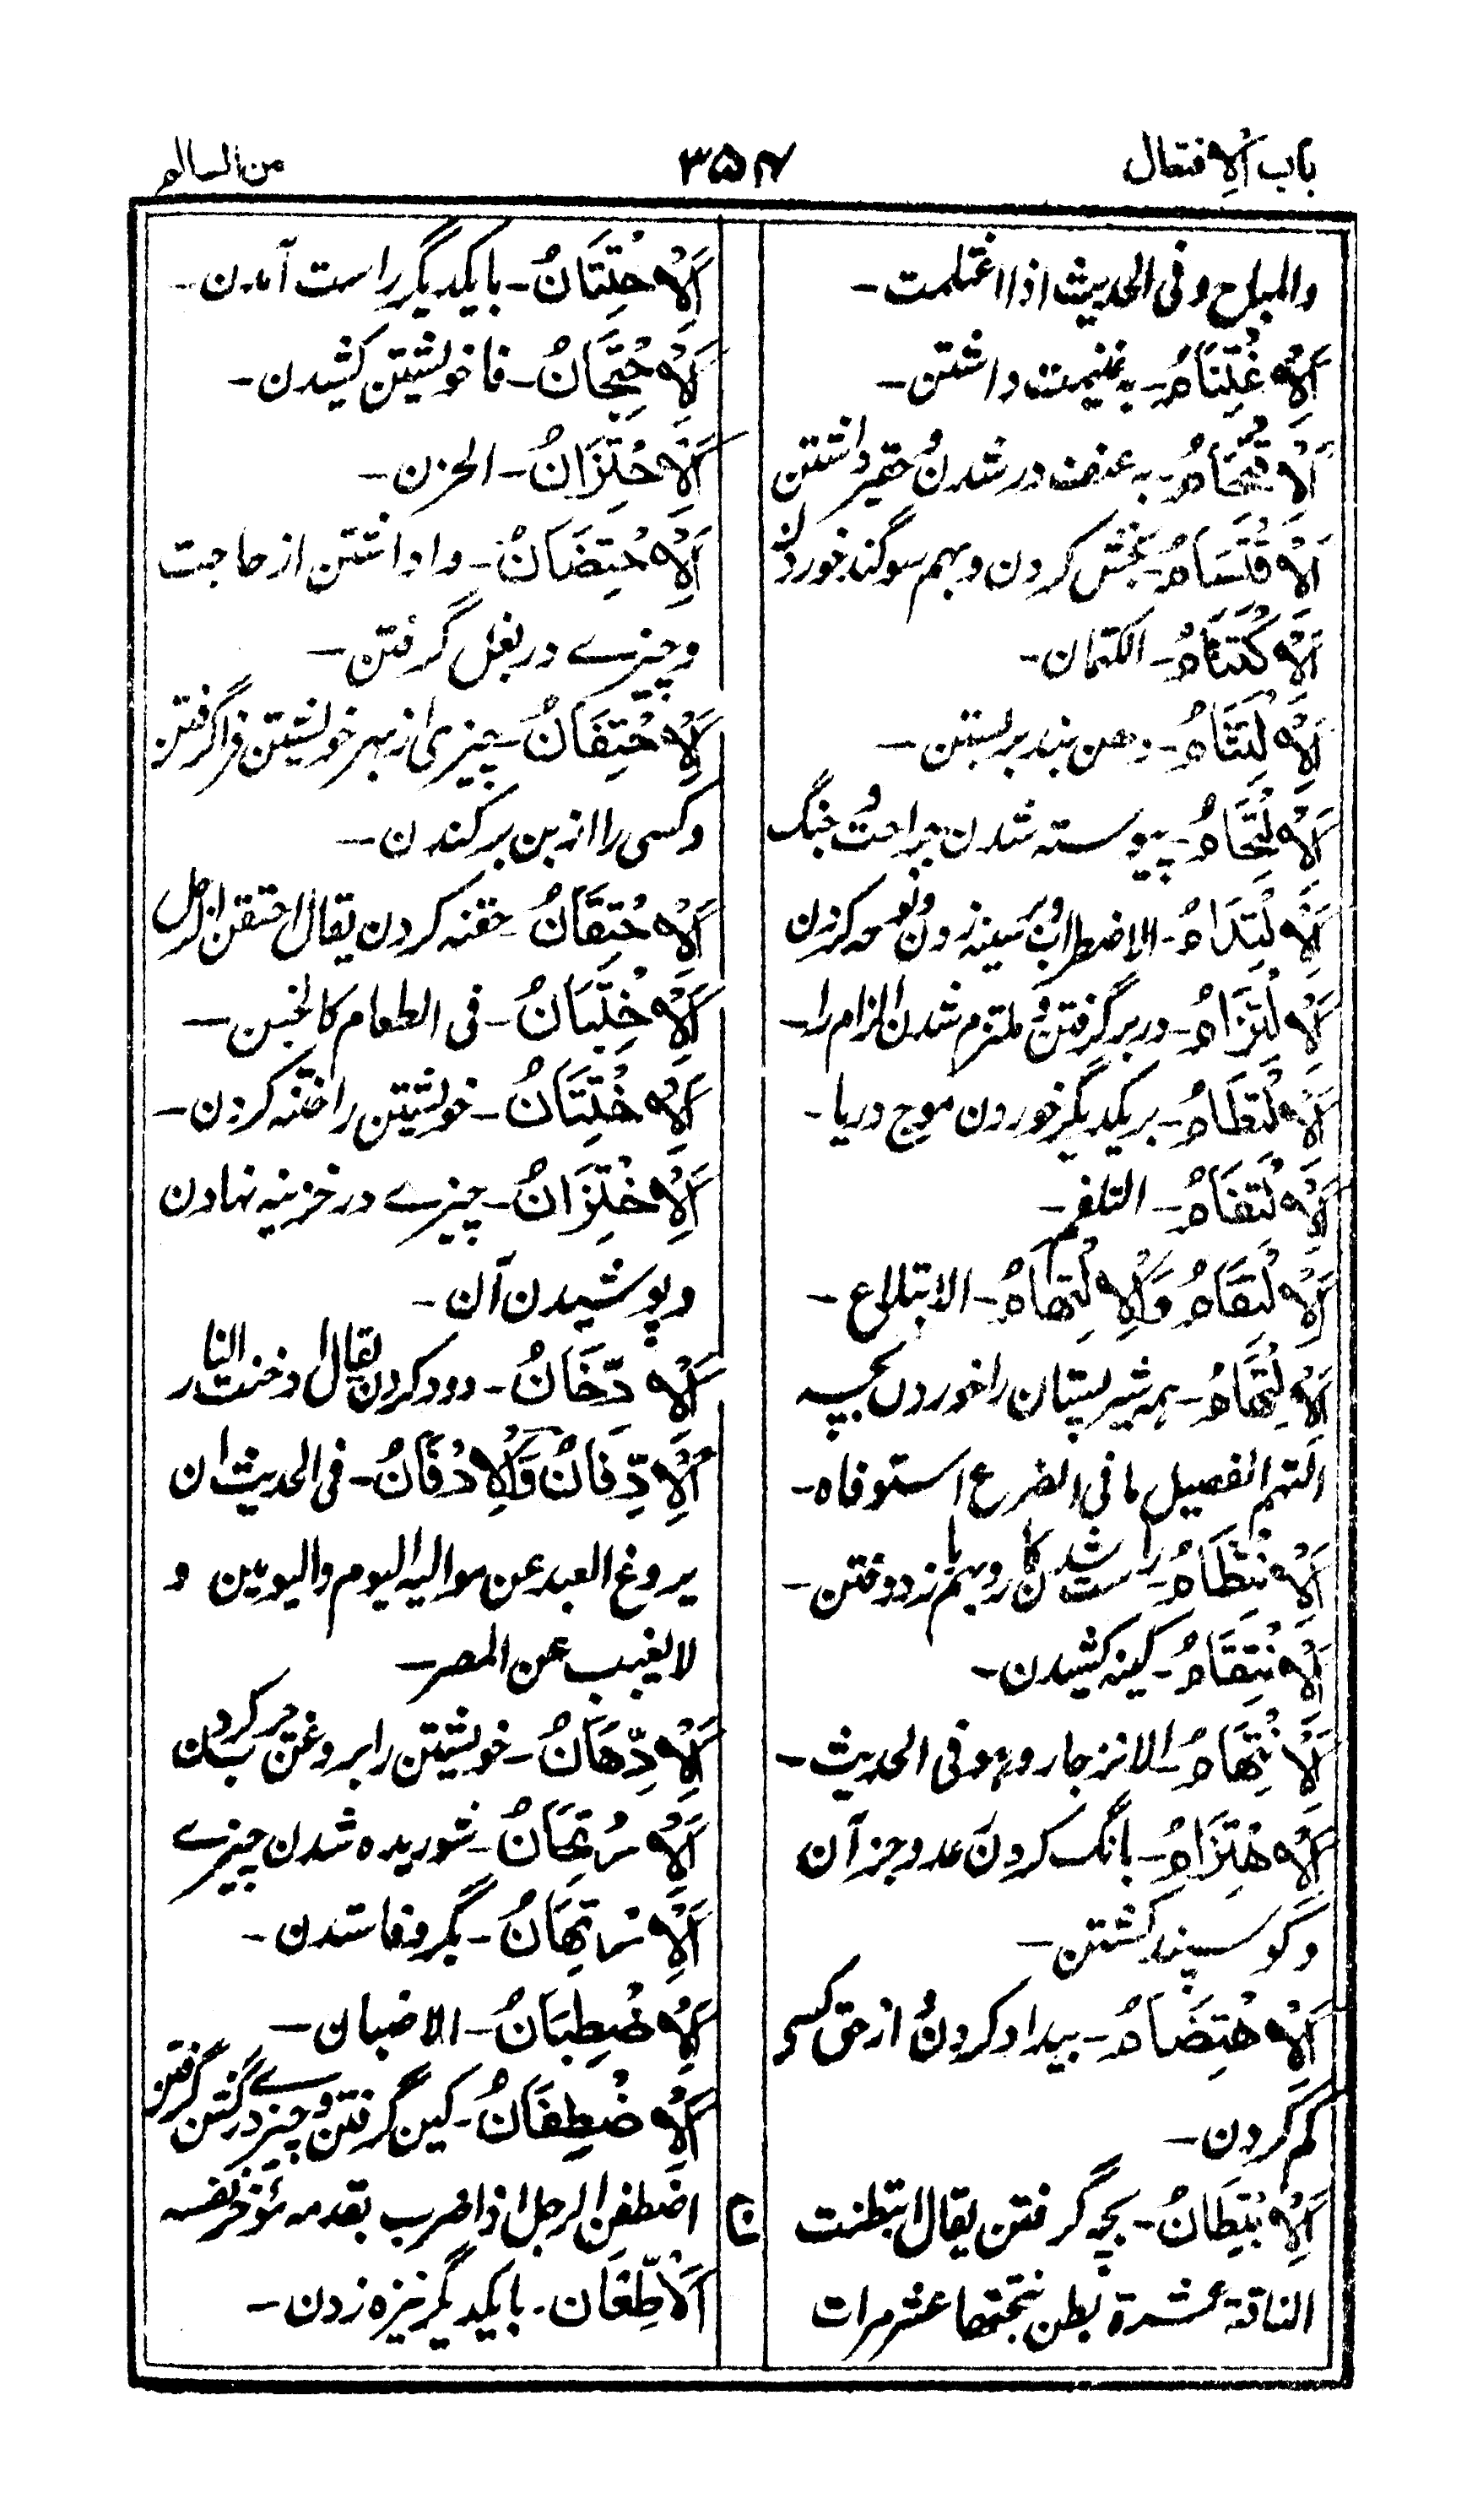 باب الافتعال
۳۵۴
من السالم
والمباح و فی الحدیث اذا اغتلمت -
اَلْاِغْتِنَامُ - به غنیمت داشتن -
اَلْاِقْتِحَامُ - به عنف در شدن و حقیر داشتن
اَلْاِقْتِسَامُ - بخش کردن و بهم سوگند خوردن
اَلْاِكْتِتَامُ - الکتمان -
اَلْاِلْتِثَامُ - دهن بند بربستن -
اَلْاِلْتِحَامُ - پیوسته شدن جراحت و جنگ
اَلْاِلْتِدَامُ - الاضطراب و سینه زدن و نوحه کردن
اَلْاِلْتِزَامُ - در بر گرفتن و ملتزم شدن الزام را -
اَلْاِلْتِطَامُ - بر یکدیگر خوردن موج دریا -
اَلْاِلْتِفَامُ - التلفم -
اَلْاِلْتِقَامُ وَالْاِلْتِهَامُ - الابتلاع -
اَلْاِلْتِهَامُ - همه شیر پستان را خوردن بچه
التهم الفصیل ما فی الضرع استوفاه -
اَلْاِنْتِظَامُ - راست شدن کار و بهم باز دوختن -
اَلْاِنْتِقَامُ - کینه کشیدن -
اَلْاِنْتِهَامُ - الانزجار و هو فی الحدیث -
اَلْاِهْتِزَامُ - بانگ کردن رعد و جز آن
و گوسپند کشتن -
اَلْاِهْتِضَامُ - بیداد کردن و از حق کسی
کم کردن -
ن
اَلْاِبْتِطَانُ - بچه گرفتن یقال ابتطنت
الناقة عشرة بطن نتجتها عشر مرات
اَلْاِخْتِتَانُ - با یکدیگر راست آمدن -
اَلْاِحْتِجَانُ - فا خویشتن کشیدن -
اَلْاِحْتِزَانُ - الحزن -
اَلْاِحْتِضَانُ - وا داشتن از حاجت
و چیزے در بغل گرفتن -
اَلْاِحْتِفَانُ - چیزی از بهر خویشتن فرا گرفتن
و کسی را از بن بر کندن -
اَلْاِحْتِقَانُ - حقنه کردن یقال احتقن الرجل
اَلْاِخْتِبَانُ - فی الطعام کالخبن -
اَلْاِخْتِتَانُ - خویشتن را ختنه کردن -
اَلْاِخْتِزَانُ - چیزے در خزینه نهادن
و پوشیدن آن -
اَلْاِدِّخَانُ - دود کردن یقال ادخنت النار
اَلْاِدِّفَانُ وَالْاِدْفَانُ - فی الحدیث ان
یروغ العبد عن موالیه الیوم والیومین و
لا یغیب عن المصر -
اَلْاِدِّهَانُ - خویشتن را بروغن چرب کردن
اَلْاِرْتِجَانُ - شوریده شدن چیزے
اَلْاِرْتِهَانُ - بگرو فا ستدن -
اَلْاِضْطِبَانُ - الاضبان -
اَلْاِضْطِغَانُ - کین گرفتن و چیزے در کش گرفتن
اضطفن الرجل اذا ضرب بقدمه مؤخر نفسه
اَلْاِطِّعَان - با یکدیگر نیزه زدن -